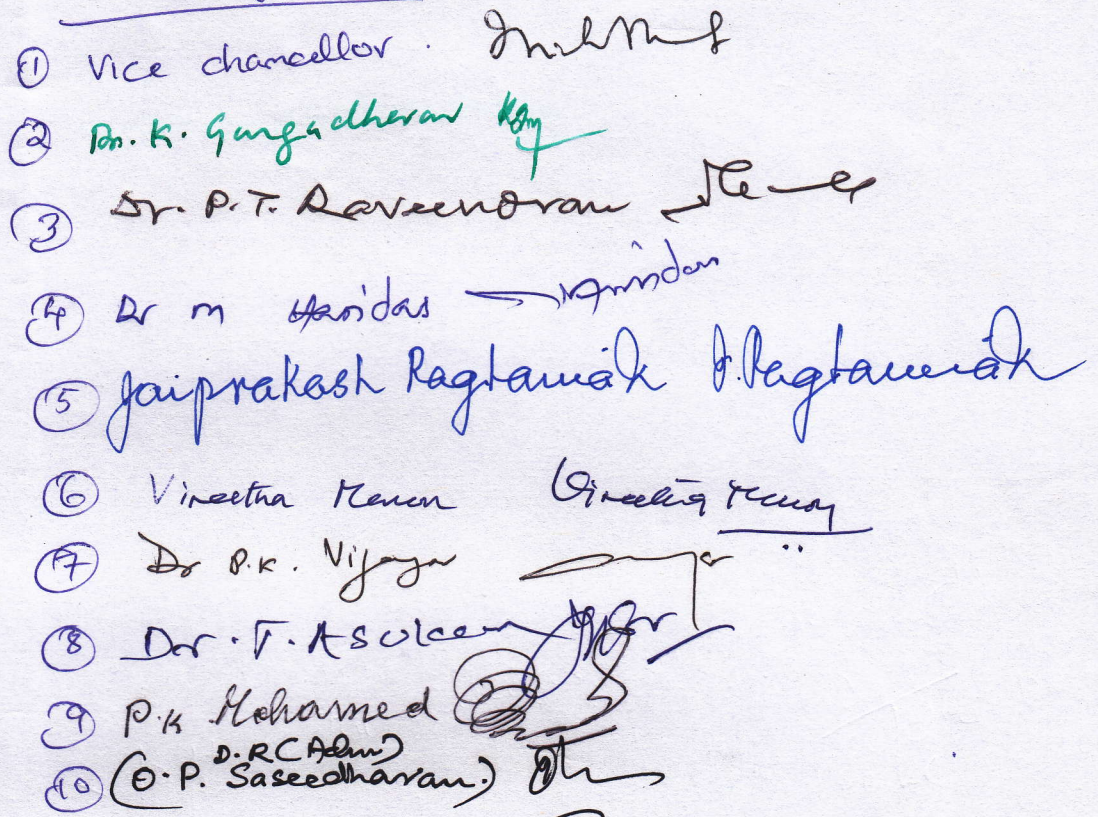 ① Vice chancellor.
② Dr. K. Gangadharan
③ Dr. P.T. Raveendran
④ Dr M Haridas
⑤ Jaiprakash Ragtamak J. Ragtamak
⑥ Vineetha Menon Vineetha Menon
⑦ Dr P.K. Vijayan
⑧ Dr. T. Asokan
⑨ P.K Mohamed
D.R (Adm)
⑩ (O.P. Saseedharan.)